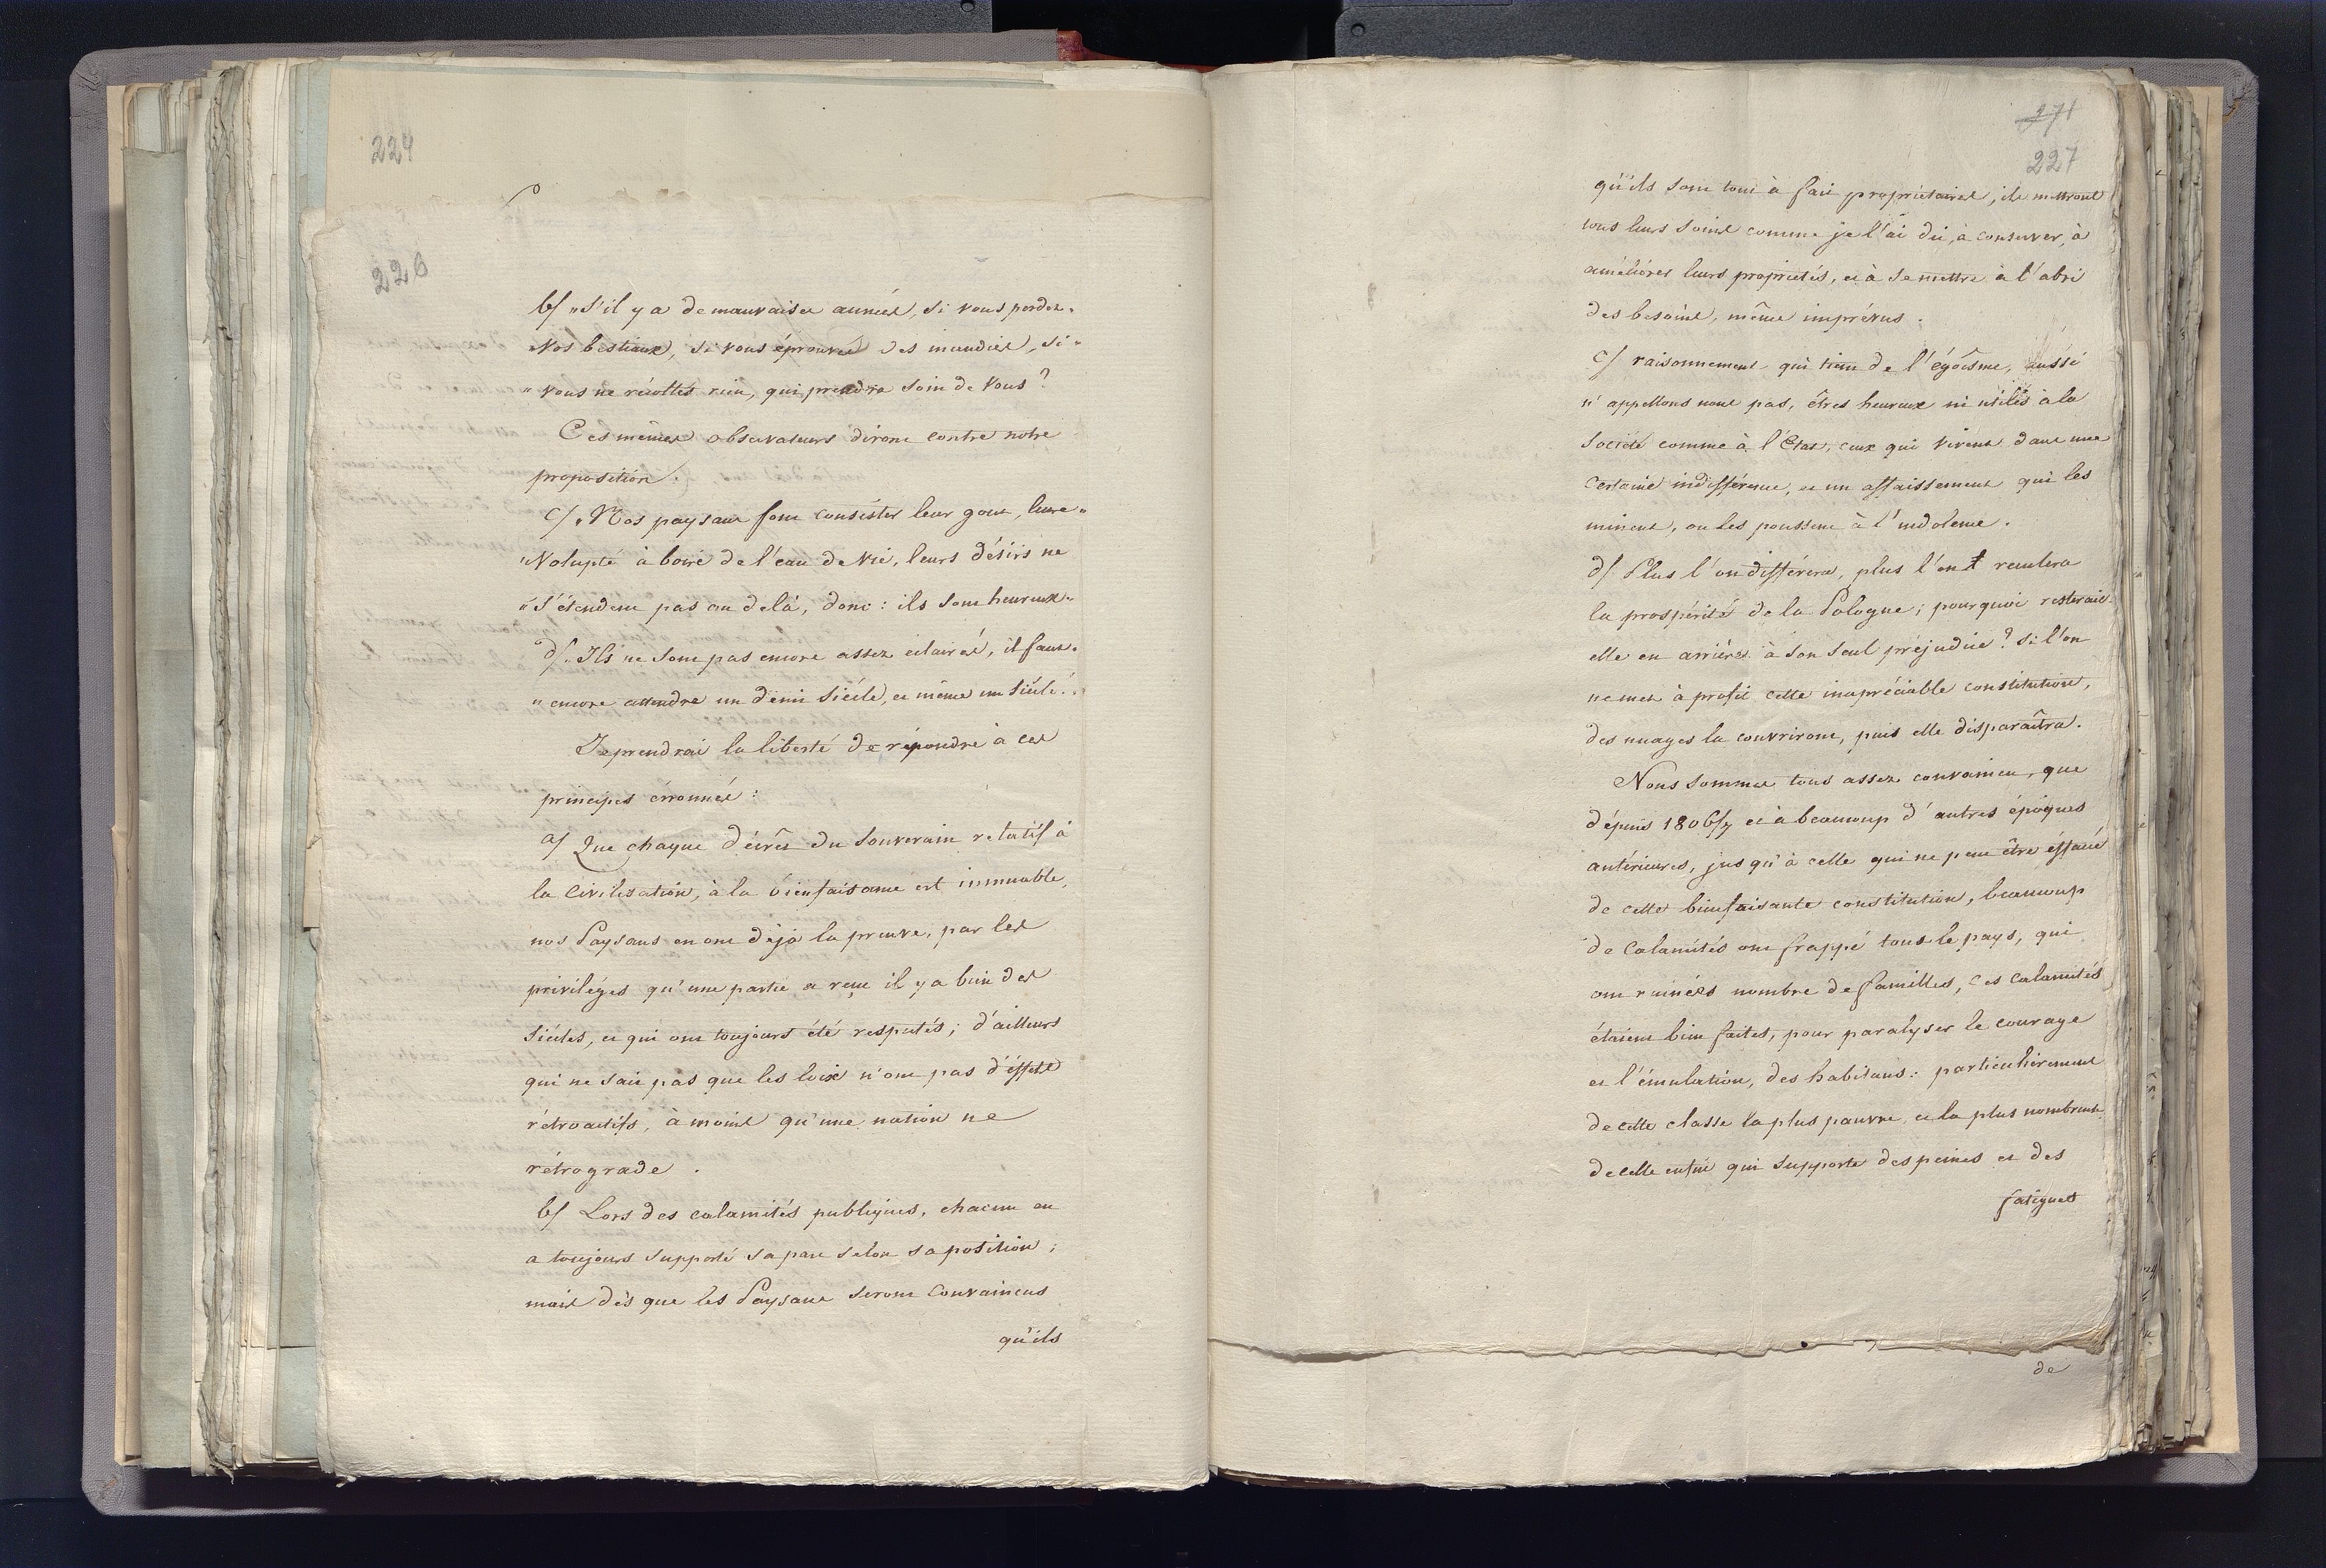 224
226
b/ „S'il y a de mauvaises années, si vous perdez„
„Vos bestiaux, si vous éprouvés des incendies, si„
„vous ne récoltés rien, qui prendra soin de Vous?
Ces mêmes observateurs diront contre notre
proposition.
c/ „Nos paysans font consister leur gout, leurs„
„Volupté à boire de l'eau de Vie, leurs désirs ne
„s'étendent pas au delà, donc: ils sont heureux„
d/ „Ils ne sont pas encore assez éclairés, il faut„
„encore attendre un demi Siécle, et même un Siécle.„
Je prendrai la liberté de répondre à ces
principes érronnés:
a/ Que chaque décrêt du Souverain relatif à
la Civilisation, à la bienfaisance est immuable,
nos Paysans en ont déja la preuve, par les
priviléges qu'une partie a reçu il y a bien des
Siécles, et qui ont toujours été respectés; d'ailleurs
qui ne sait pas que les loix n'ont pas d'éffets
rétroactifs, à moins qu'une nation ne
rétrograde.
b/ Lors des calamités publiques, chacun en
a toujours supporté sa part selon sa position;
mais dès que les Paysans seront Convaincus
qu'ils
271
227
qu'ils sont tout à fait propriétaires, ils mettront
tous leurs soins comme je l'ai dit, à conserver, à
améliorer leurs propriétés, et à se mettre à l'abri
des besoins, même imprévus.
c/ raisonnement qui tient de l'égoïsme, aussi
n'appellons nous pas, êtres heureux ni utiles à la
Société comme à l'Etat, ceux qui vivent dans une
Certaine indifférence, et un affaissement qui les
minent, ou les poussent à l'indolence.
d/ Plus l'on différera, plus l'on reculera
la prospérité de la Pologne; pourquoi resterait
elle en arriére à son seul préjudice? Si l'on
ne met à profit cette inapréciable constitution,
des nuages la couvriront, puis elle disparaîtra.
Nous sommes tous assez convaincu, que
dépuis 1806/7 et à beaucoup d'autres époques
antérieures, jusqu'à celle qui ne peut être éffacé
de cette bienfaisante constitution, beaucoup
de Calamités ont frappé tous le pays, qui
ont ruinées nombre de familles, Ces Calamités
étaient bien faites, pour paralyser le courage
et l'émulation, des habitans: particuliérement
de cette classe la plus pauvre et la plus nombreuse
de celle enfin qui supporte des peines et des
fatigues
de